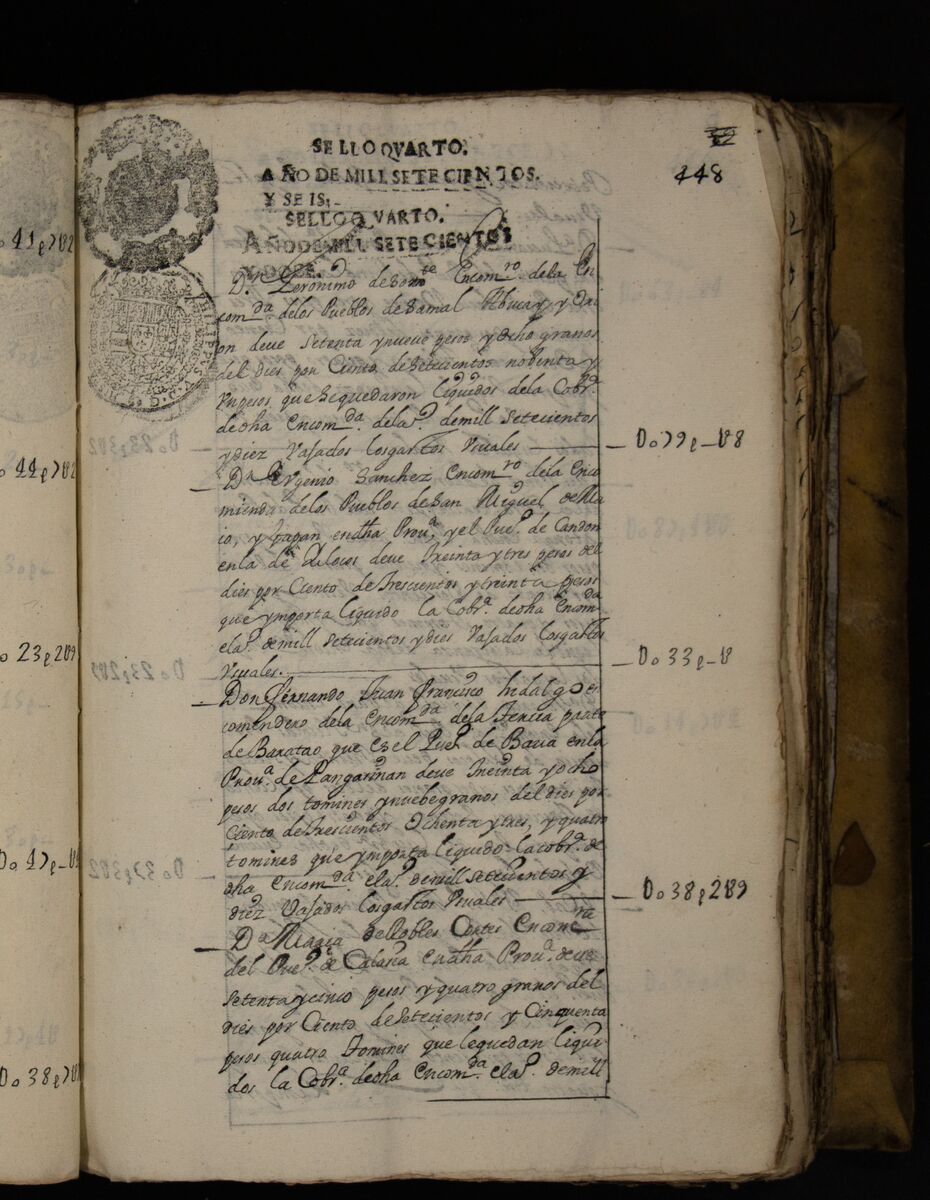 448
SELLO QVARTO.
AÑO DE MILL SETECIENTOS.
Y SEIS.
SELLO QVARTO.
AÑO DE MILL SETECIENTOS
Y DOZE.
Dn. Geronimo de Encomro. dela En
comda. delos Pueblos de Samal Abucay, y Da
on deve Setenta ynueve pesos y Ocho granos
del dies por Ciento de Setecientos nobenta y
Vn pesos, que le quedaron liquidos dela Cobra.
de dha Encomda. dela demill Setecientos
y diez Vajados losgastos Vsuales
Do 79 p – U8
Dn Evgenio Sanchez Encomro dela Enco
mienda delos Pueblos de San Miguel, de
en dha Prova. y el Pueo. de Candon
enla de Ylocos deve Treinta y tres pesos del
dies por Ciento de Trescientos y treinta pesos
que ymporta liquido la Cobra. de dha Encomda
ela. demill Setecientos y dies Vajados losgastos
Vsuales.
Do 33 p – U
Don Fernando Juan Francisco hidalgo en
comendero dela Encomda. dela Tercia parte
de Baratao que es el Pueo. de Baua enla
Prova. de Pangasinan deve Treinta y ocho
pesos dos tomines ynuebe granos del dies por
Ciento de Trescientos Ochenta y tres, y quatro
tomines que ymporta liquido la cobra. de
dha Encomda. ela. demill Setecientos y
diez Vajados losgastos Vsuales
Do 38 p 2U9
Da Maria de Robles Cortes Encomra
del Pueo. de Calasia en dha Prova. deve
Setenta y cinco pesos y quatro granos del
dies por Ciento de Setecientos y Cinquenta
pesos quatro Tomines que le quedan liqui
dos la Cobra. de dha Encomda. ela. demill
o 41 p 7U2
o 44 p 7U2
o 23 p 2U9
Do 47 p – U
Do 38 p 7U